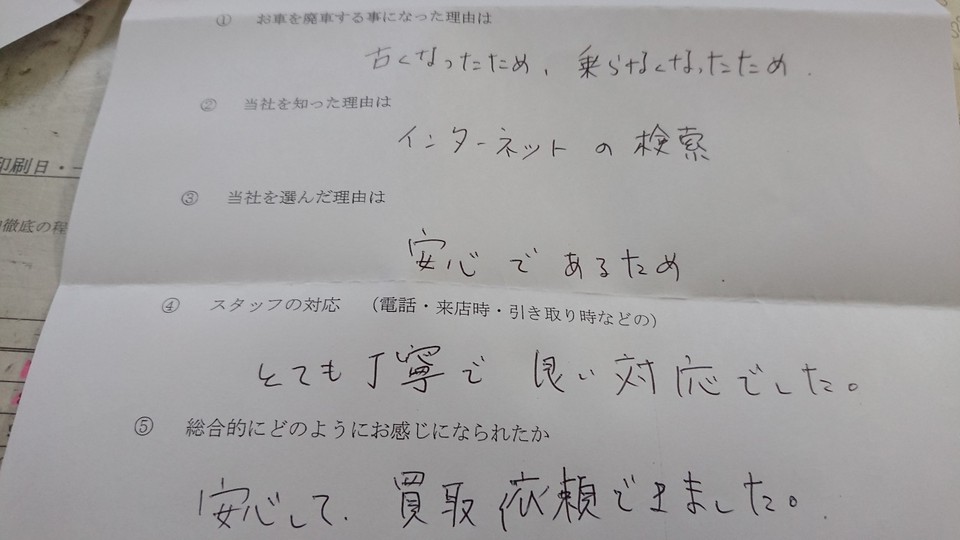 ① お車を廃車する事になった理由は
古くなったため、乗らなくなったため.
② 当社を知った理由は
インターネットの検索
③ 当社を選んだ理由は
安心であるため.
④ スタッフの対応 (電話・来店時・引き取り時などの)
とても丁寧で良い対応でした。
⑤ 総合的にどのようにお感じになられたか
安心して、買取依頼できました。
印刷日・
徹底の